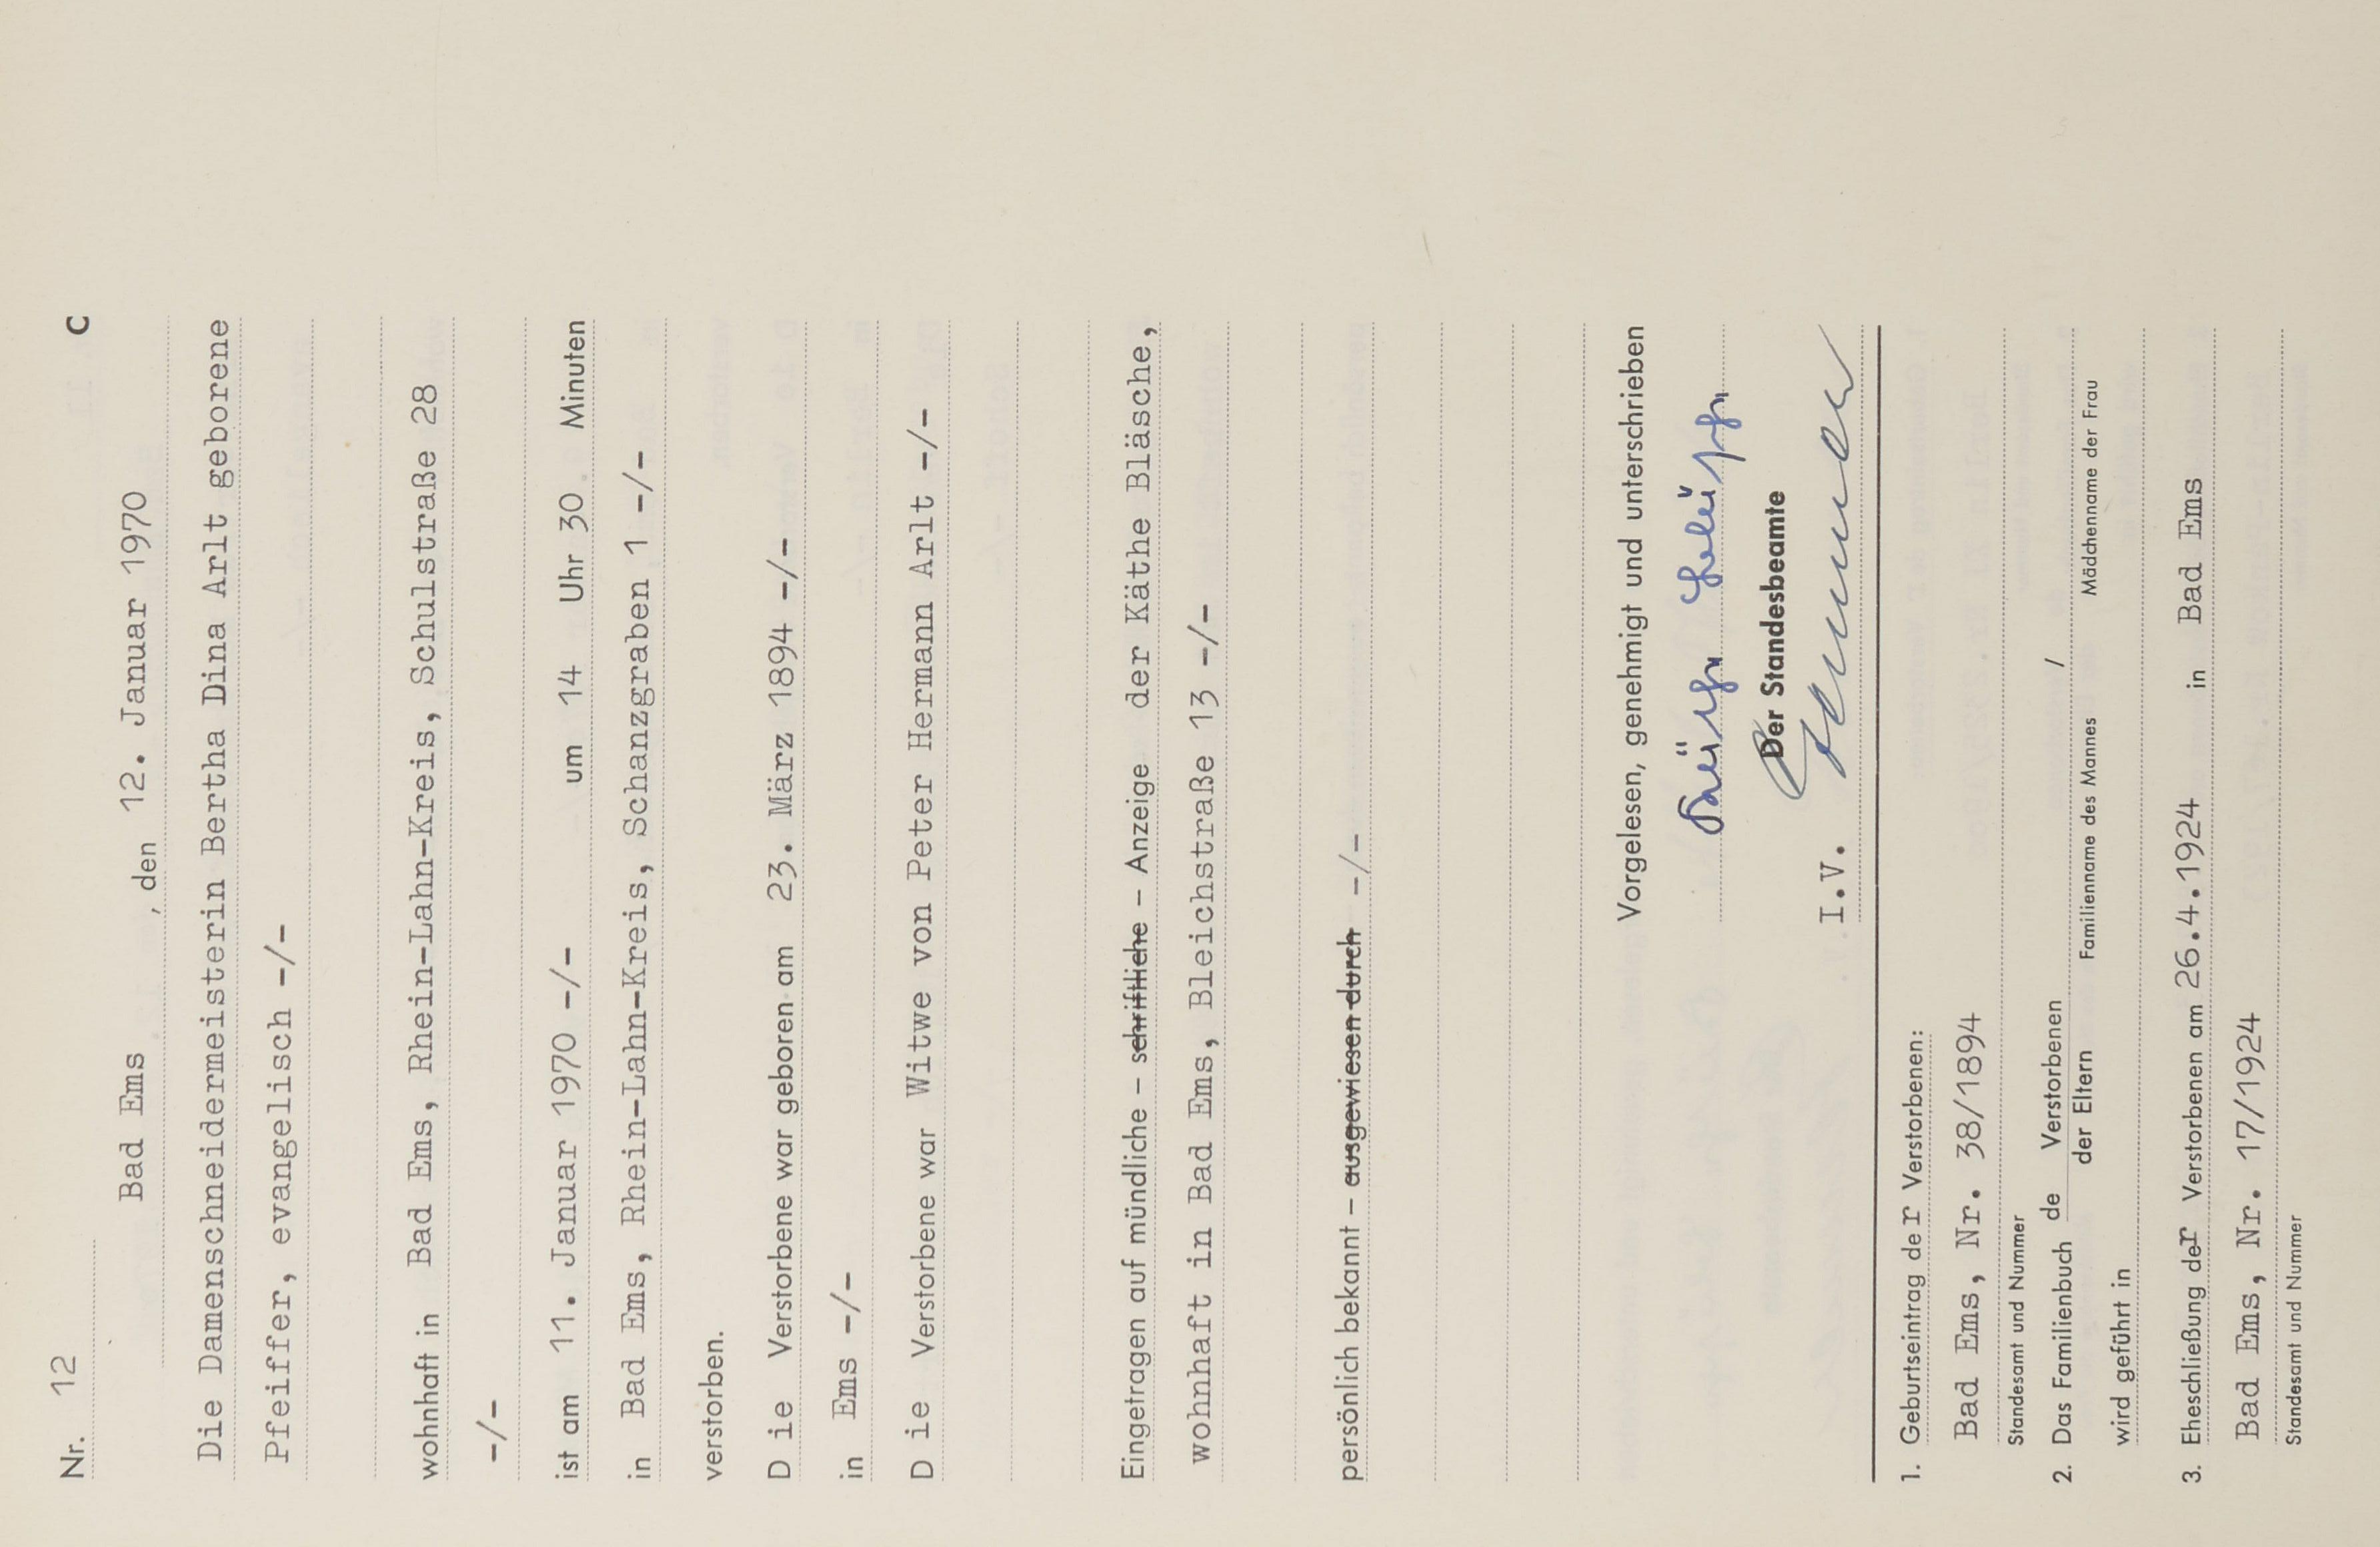 Nr. 12 C
Bad Ems, den 12. Januar 1970
Die Damenschneidermeisterin Bertha Dina Arlt geborene
Pfeiffer, evangelisch -/-
wohnhaft in Bad Ems, Rhein-Lahn-Kreis, Schulstraße 28
-/-
ist am 11. Januar 1970 -/- um 14 Uhr 30 Minuten
in Bad Ems, Rhein-Lahn-Kreis, Schanzgraben 1 -/-
verstorben.
D ie Verstorbene war geboren am 23. März 1894 -/-
in Ems -/-
D ie Verstorbene war Witwe von Peter Hermann Arlt -/-
Eingetragen auf mündliche – schriftliche – Anzeige der Käthe Bläsche,
wohnhaft in Bad Ems, Bleichstraße 13 -/-
persönlich bekannt – ausgewiesen durch -/-
Vorgelesen, genehmigt und unterschrieben
Der Standesbeamte
I.V.
1. Geburtseintrag der Verstorbenen:
Bad Ems, Nr. 38/1894
Standesamt und Nummer
2. Das Familienbuch de Verstorbenen /
der Eltern Familienname des Mannes Mädchenname der Frau
wird geführt in
3. Eheschließung der Verstorbenen am 26.4.1924 in Bad Ems
Bad Ems, Nr. 17/1924
Standesamt und Nummer